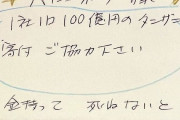 1社10100億円のタンザニ
寄付 ご協力下さい
金持って 死ねないと